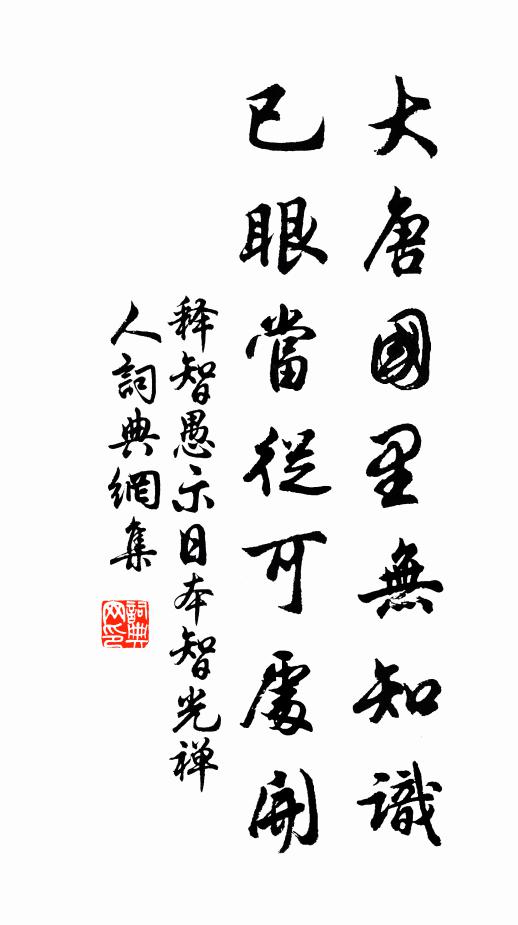 大唐國里無知識
已眼當從可處開
释智愚示日本智光禅
人詞典網集
詞典网印